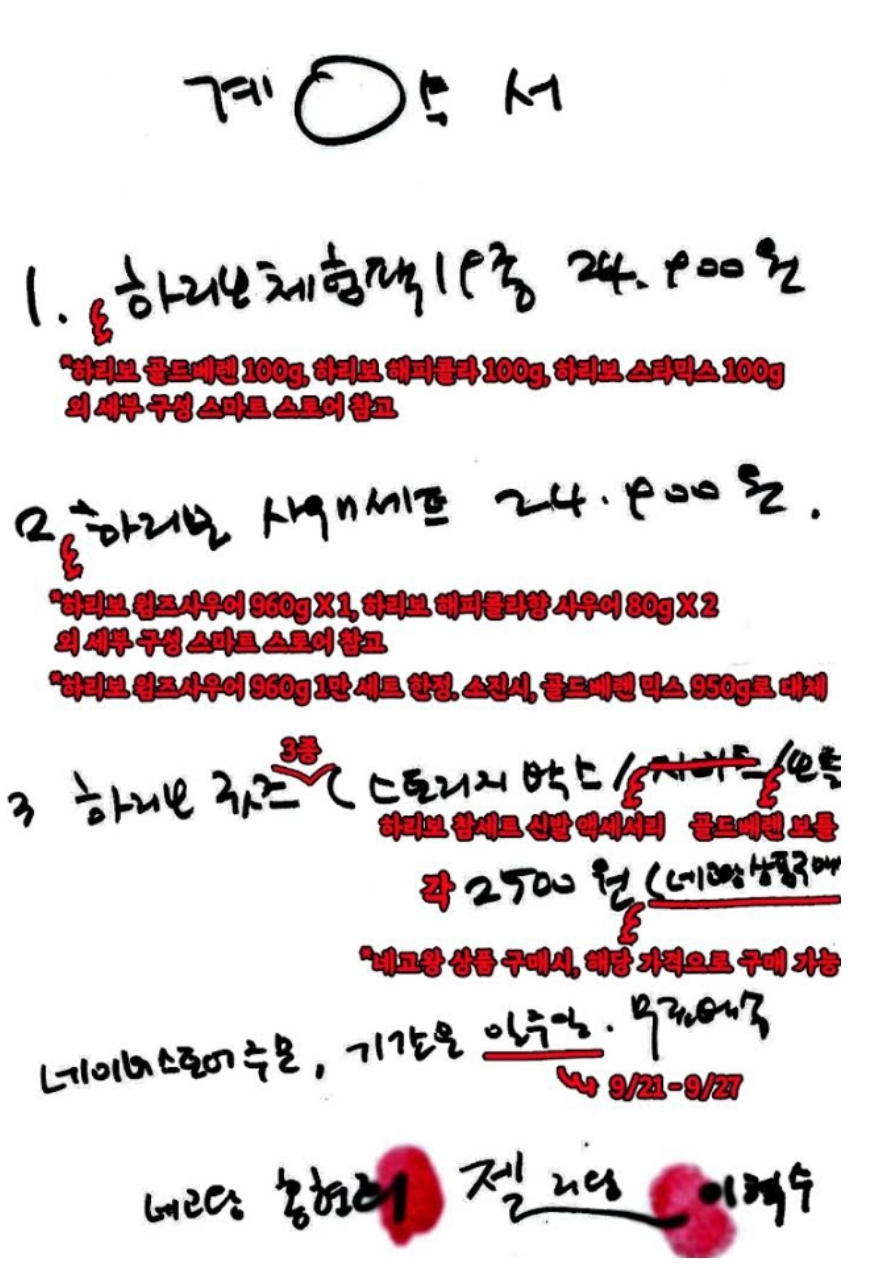 계약서
1. 하리보체험팩 19종 24.900원
*하리보 골드베렌 100g, 하리보 해피콜라 100g, 하리보 스타믹스 100g
외 세부 구성 스마트 스토어 참고
2 하리보 사워세트 24.900원.
*하리보 웜즈사우어 960g X 1, 하리보 해피콜라향 사우어 80g X 2
외 세부 구성 스마트 스토어 참고
*하리보 웜즈사우어 960g 1만 세트 한정. 소진시, 골드베렌 믹스 950g로 대체
3종
3 하리보 굿즈 (스토리지 박스 / 지비츠 / 보틀
하리보 참세트 신발 액세서리 골드베렌 보틀
각 2500원 (네고왕 상품구매
*네고왕 상품 구매시, 해당 가격으로 구매 가능
네이버스토어 주문, 기간은 일주일. 무료배송
9/21 - 9/27
네고왕 홍현희 젤리왕 이혁수